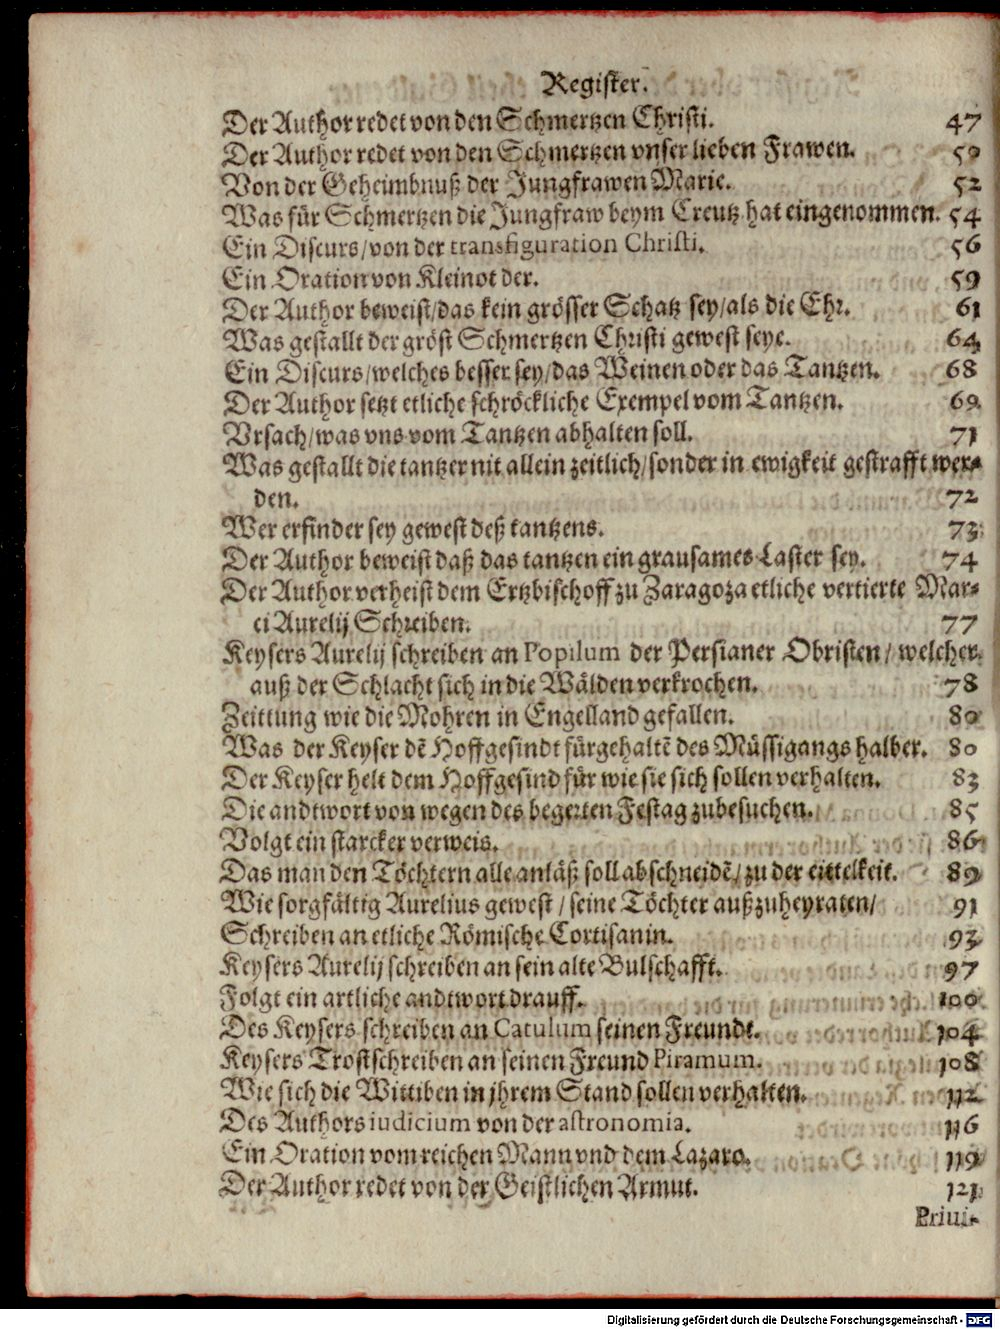 Register.
Der Author redet von den Schmertzen Christi. 47
Der Author redet von den Schmertzen vnser lieben Frawen. 50
Von der Geheimbnuß der Jungfrawen Marie. 52
Was für Schmertzen die Jungfraw beym Creutz hat eingenommen. 54
Ein Discurs/von der transfiguration Christi. 56
Ein Oration von Kleinot der. 59
Der Author beweist/das kein grösser Schatz sey/als die Ehr. 61
Was gestallt der gröst Schmertzen Christi gewest seye. 64
Ein Discurs/welches besser sey/das Weinen oder das Tantzen. 68
Der Author setzt etliche schröckliche Exempel vom Tantzen. 69
Vrsach/was vns vom Tantzen abhalten soll. 71
Was gestallt die tantzer nit allein zeitlich/sonder in ewigkeit gestrafft wer-
den. 72
Wer erfinder sey gewest deß tantzens. 73
Der Author beweist daß das tantzen ein grausames Laster sey. 74
Der Author verheist dem Ertzbischoff zu Zaragoza etliche vertierte Mar-
ci Aurelij Schreiben. 77
Keysers Aurelij schreiben an Popilum der Persianer Obristen/ welcher
auß der Schlacht sich in die Wälden verkrochen. 78
Zeittung wie die Mohren in Engelland gefallen. 80
Was der Keyser dẽ Hoffgesindt fürgehaltẽ des Müssigangs halber. 80
Der Keyser helt dem Hoffgesind für wie sie sich sollen verhalten. 83
Die andtwort von wegen des begerten Festag zubesuchen. 85
Volgt ein starcker verweis. 86
Das man den Töchtern alle anläß soll abschneidẽ/zu der eittelkeit. 89
Wie sorgfältig Aurelius gewest/seine Töchter außzuheyraten/ 91
Schreiben an etliche Römische Cortisanin. 93
Keysers Aurelij schreiben an sein alte Bulschafft. 97
Folgt ein artliche andtwort drauff. 100
Des Keysers schreiben an Catulum seinen Freundt. 104
Keysers Trostschreiben an seinen Freund Piramum. 108
Wie sich die Wittiben in jhrem Stand sollen verhalten. 112
Des Authors iudicium von der astronomia. 116
Ein Oration vom reichen Mann vnd dem Lazaro. 119
Der Author redet von der Geistlichen Armut. 121
Priui-
Digitalisierung gefördert durch die Deutsche Forschungsgemeinschaft - DFG